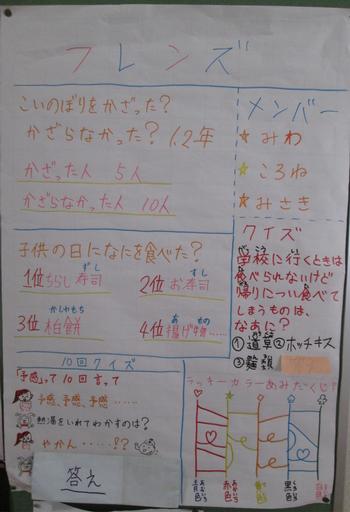 フレンズ
こいのぼりをかざった?
かざらなかった? 1.2年
かざった人 5人
かざらなかった人 10人
メンバー
★みわ
★ころね
★みさき
子供の日になにを食べた?
1位ちらし寿司
ずし
2位お寿司
すし
3位柏餅
かしわもち
4位揚げ物……
あ もの
クイズ
学校に行くときは
食べられないけど
帰りについ食べて
しまうものは、
なあに?
①道草②ホッチキス
③
10回クイズ
「予感」って10回言って
予感、予感、予感……
熱湯をいれてわかすのは?
やかん……??
答え
ラッキーカラーあみたくじ?
青色
赤色
黒色